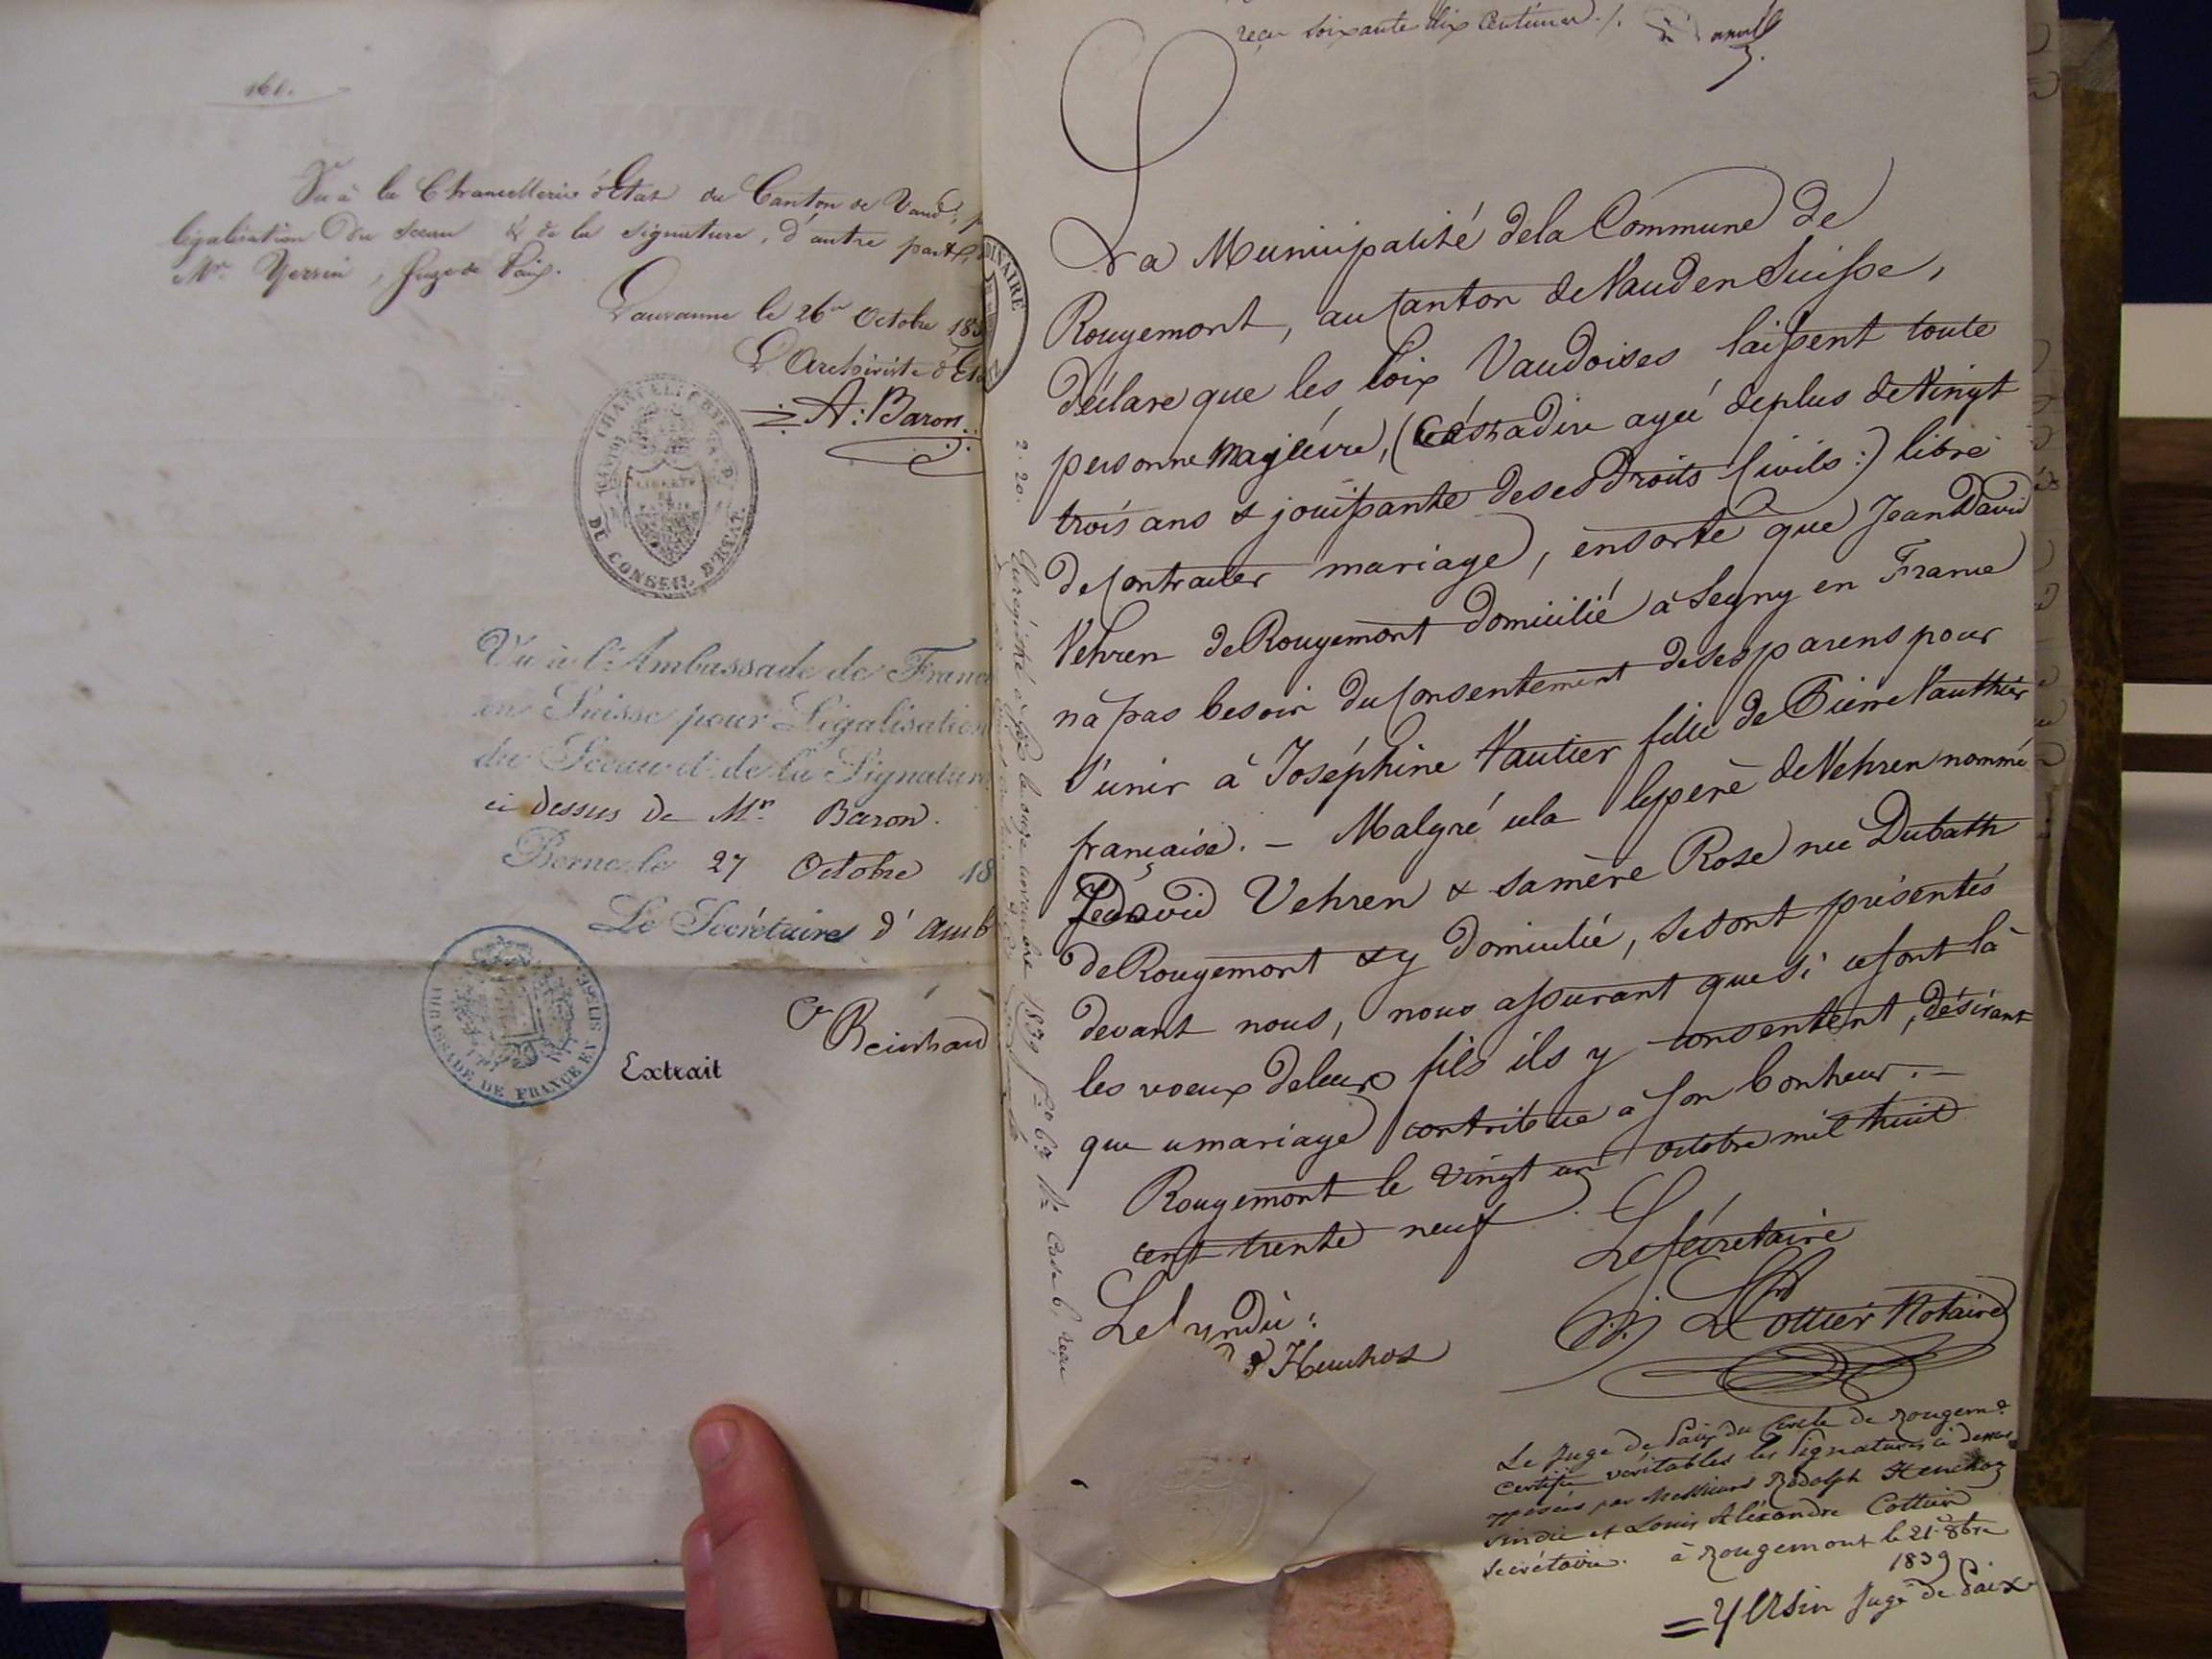 160.
Vu à la Chancellerie d'Etat du Canton de Vaud,
légalisation du sceau & de la signature, d'autre part,
Mr. Yersin, Juge de Paix.
Lausanne le 26e Octobre 183
L'Archiviste d'Et
A: Baron.
CHANCELLERIE
DU CONSEIL D'ETAT
CANTON DE VAUD
LIBERTÉ ET PATRIE
Vu à l'Ambassade de France
en Suisse pour Légalisation
du Sceau et de la Signature
ci dessus de Mr. Baron.
Berne le 27 Octobre 18
Le Secrétaire d'Amb
AMBASSADE DE FRANCE EN SUISSE
Cte Reinhard
Extrait
DINAIRE
2. 20.
Enregistré à Gex le onze novembre 1839 fo 63 Ro Case 6, reçu
reçu soixante dix centimes
La Municipalité de la Commune de
Rougemont, au Canton de Vaud en Suisse,
déclare que les loix Vaudoises laissent toute
personne majeure, (C'est a dire agée de plus de Vingt
trois ans & jouissante de ses Droits Civils:) libre
de Contracter mariage, ensorte que Jean David
Vehren de Rougemont domicilié à Segny en France
n'a pas besoin du Consentement de ses parens pour
s'unir à Joséphine Vautier fille de Pierre Vauthier
française. – Malgré cela le père de Vehren nommé
Jn David Vehren & sa mère Rose née Dubath
de Rougemont & y domicilié, se sont présentés
devant nous, nous assurant que si ce sont là
les voeux de leur fils ils y consentent, désirant
que ce mariage contribue a son bonheur. –
Rougemont le Vingt un octobre mil huit
cent trente neuf.
Le Secrétaire
Le Syndic:
Henchoz
Ls Ax Cottier Notaire
Le Juge de Paix du Cercle de Rougemt
certifie véritables les Signatures ci dessus
apposées par Messieurs Rodolph Henchoz
sindic et Louis Aléxandre Cottier
secrétaire. à Rougemont le 21 8bre
1839
Yersin Juge de Paix